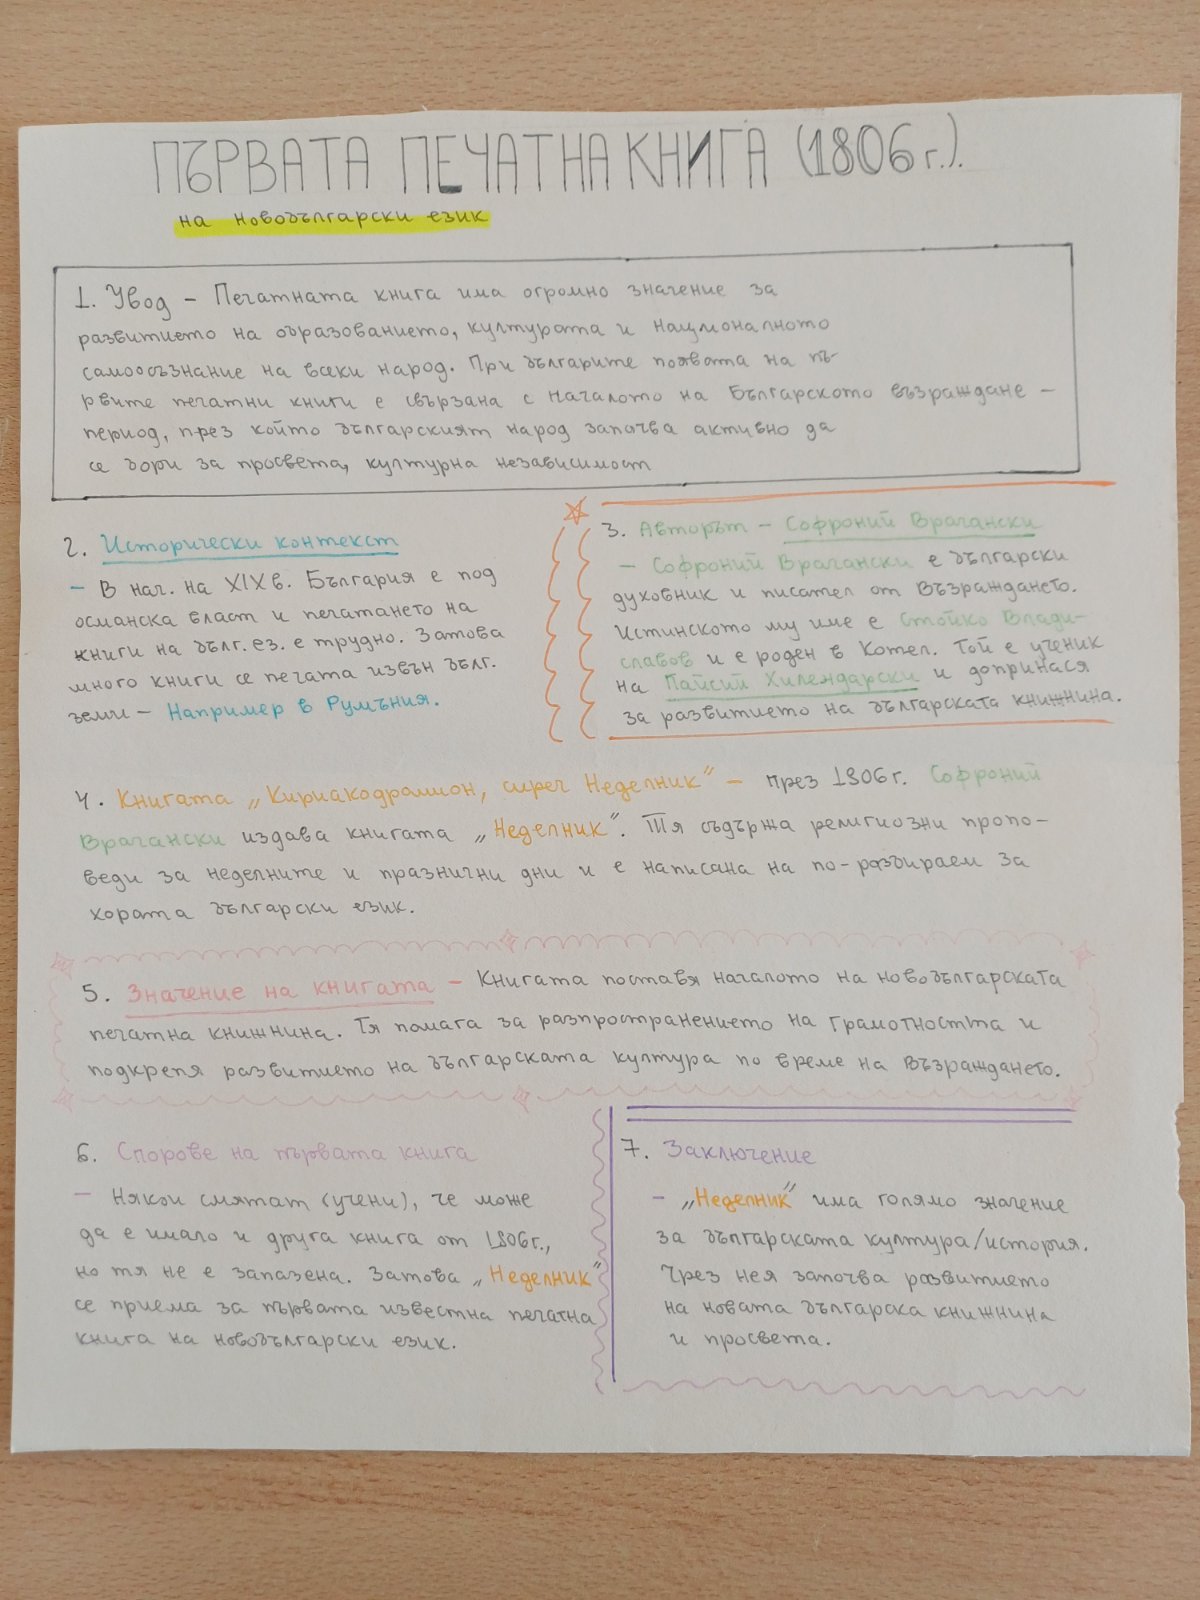 ПЪРВАТА ПЕЧАТНА КНИГА (1806 г.).
на новобългарски език
1. Увод – Печатната книга има огромно значение за
развитието на образованието, културата и националното
самоосъзнание на всеки народ. При българите появата на пъ-
рвите печатни книги е свързана с началото на Българското възраждане –
период, през който българският народ започва активно да
се бори за просвета, културна независимост
2. Исторически контекст
– В нач. на XIX в. България е под
османска власт и печатането на
книги на бълг. ез. е трудно. Затова
много книги се печата извън бълг.
земи – Например в Румъния.
3. Авторът – Софроний Врачански
– Софроний Врачански е български
духовник и писател от Възраждането.
Истинското му име е Стойко Влади-
славов и е роден в Котел. Той е ученик
на Пайсий Хилендарски и допринася
за развитието на българската книжнина.
4. Книгата „Кириакодромион, сиреч Неделник" – през 1806 г. Софроний
Врачански издава книгата „Неделник". Тя съдържа религиозни пропо-
веди за неделните и празнични дни и е написана на по-разбираем за
хората български език.
5. Значение на книгата – Книгата поставя началото на новобългарската
печатна книжнина. Тя помага за разпространението на грамотността и
подкрепя развитието на българската култура по време на Възраждането.
6. Спорове на първата книга
– Някои смятат (учени), че може
да е имало и друга книга от 1806 г.,
но тя не е запазена. Затова „Неделник"
се приема за първата известна печатна
книга на новобългарски език.
7. Заключение
– „Неделник" има голямо значение
за българската култура/история.
Чрез нея започва развитието
на новата българска книжнина
и просвета.